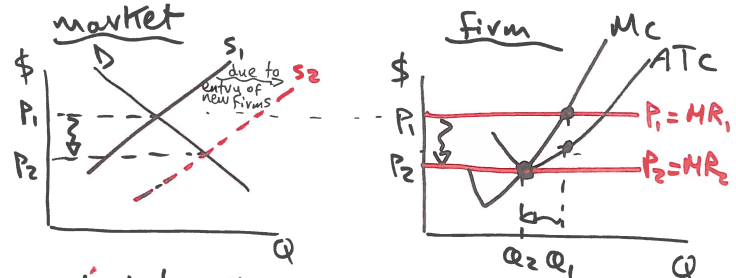 market
firm
D
S1
due to
entry of
new firms
S2
$
P1
P2
Q
$
MC
ATC
P1
P1=MR1
P2
P2=MR2
Q2 Q1
Q